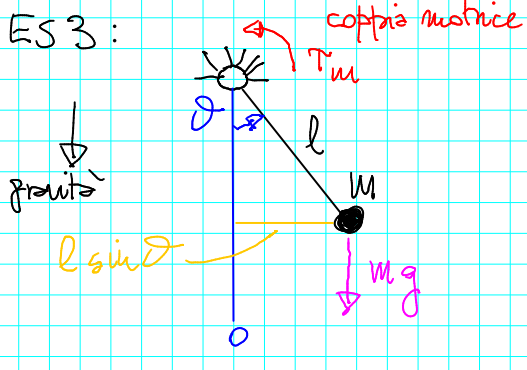 ES3:
coppia motrice
τm
ϑ
l
gravità
m
l sinϑ
mg
0